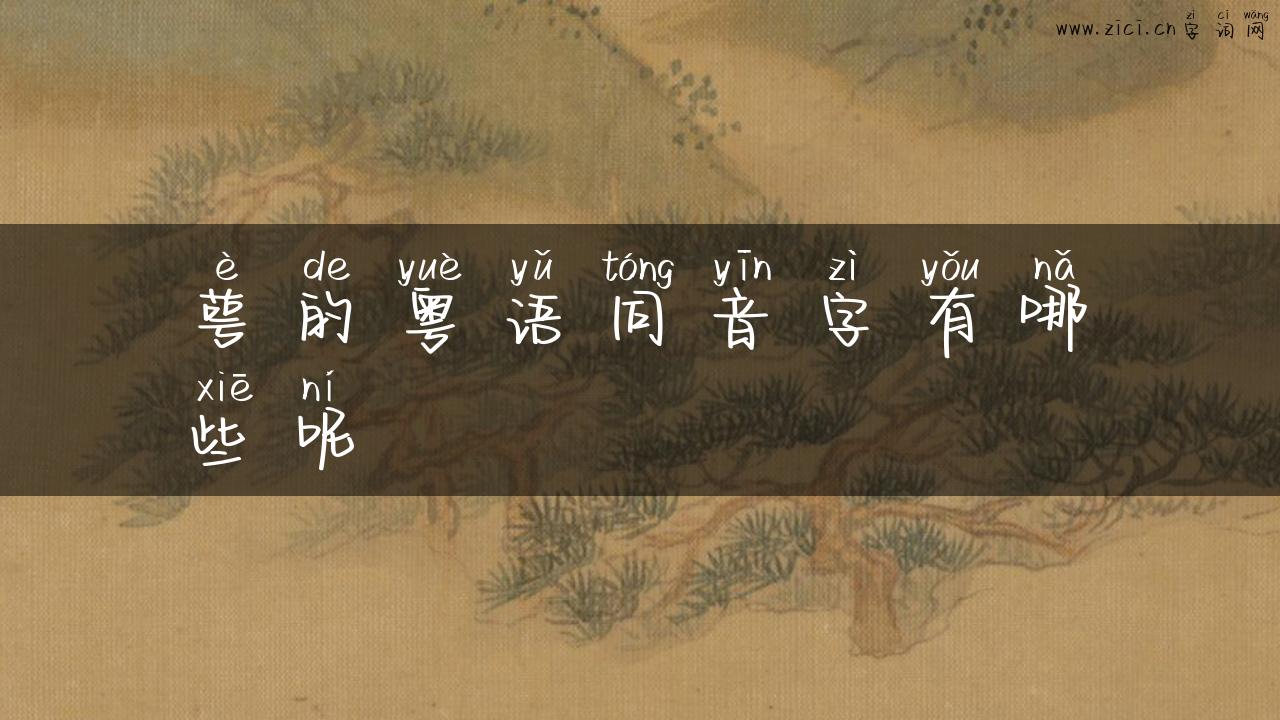 zì cí wǎng
www.zīcī.cn 字 词 网
è de yuè yǔ tóng yīn zì yǒu nǎ
萼 的 粤 语 同 音 字 有 哪
xiē ní
些 呢